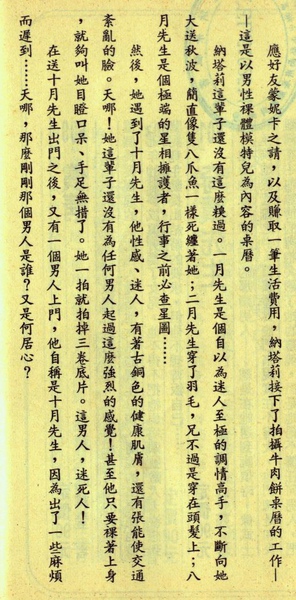 應好友蒙妮卡之請，以及賺取一筆生活費用，納塔莉接下了拍攝牛肉餅桌曆的工作—
—這是以男性裸體模特兒為內容的桌曆。
納塔莉這輩子還沒有這麼糗過。一月先生是個自以為迷人至極的調情高手，不斷向她
大送秋波，簡直像隻八爪魚一樣死纏著她；二月先生穿了羽毛，兄不過是穿在頭髮上；八
月先生是個極端的星相擁護者，行事之前必查星圖……
然後，她遇到了十月先生，他性感、迷人，有著古銅色的健康肌膚，還有張能使交通
紊亂的臉。天哪！她這輩子還沒有為任何男人起過這麼強烈的感覺！甚至他只要裸著上身
，就夠叫她目瞪口呆、手足無措了。她一拍就拍掉三卷底片。這男人，迷死人！
在送十月先生出門之後，又有一個男人上門，他自稱是十月先生，因為出了一些麻煩
而遲到……天哪，那麼剛剛那個男人是誰？又是何居心？